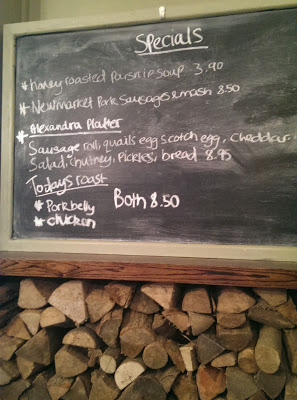 Specials
* honey roasted parsnip soup 3.90
* Newmarket Pork Sausages & mash 8.50
* Alexandra Platter
Sausage roll, quails egg scotch egg, cheddar
Salad, chutney, Pickles, bread 8.95
Todays roast
* Pork belly
Both 8.50
* chicken